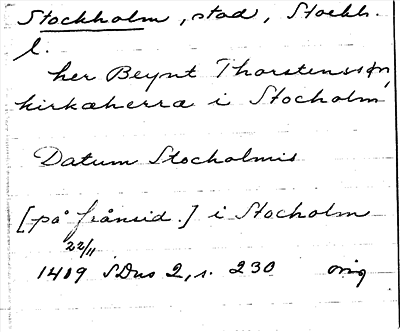 Stockholm, stad, Stockh.
l.
her Beynt Thorstensson,
kirkæherra i Stocholm
Datum Stocholmis
[på frånsid.] i Stocholm
22/11
1419 SDns 2, s. 230 orig